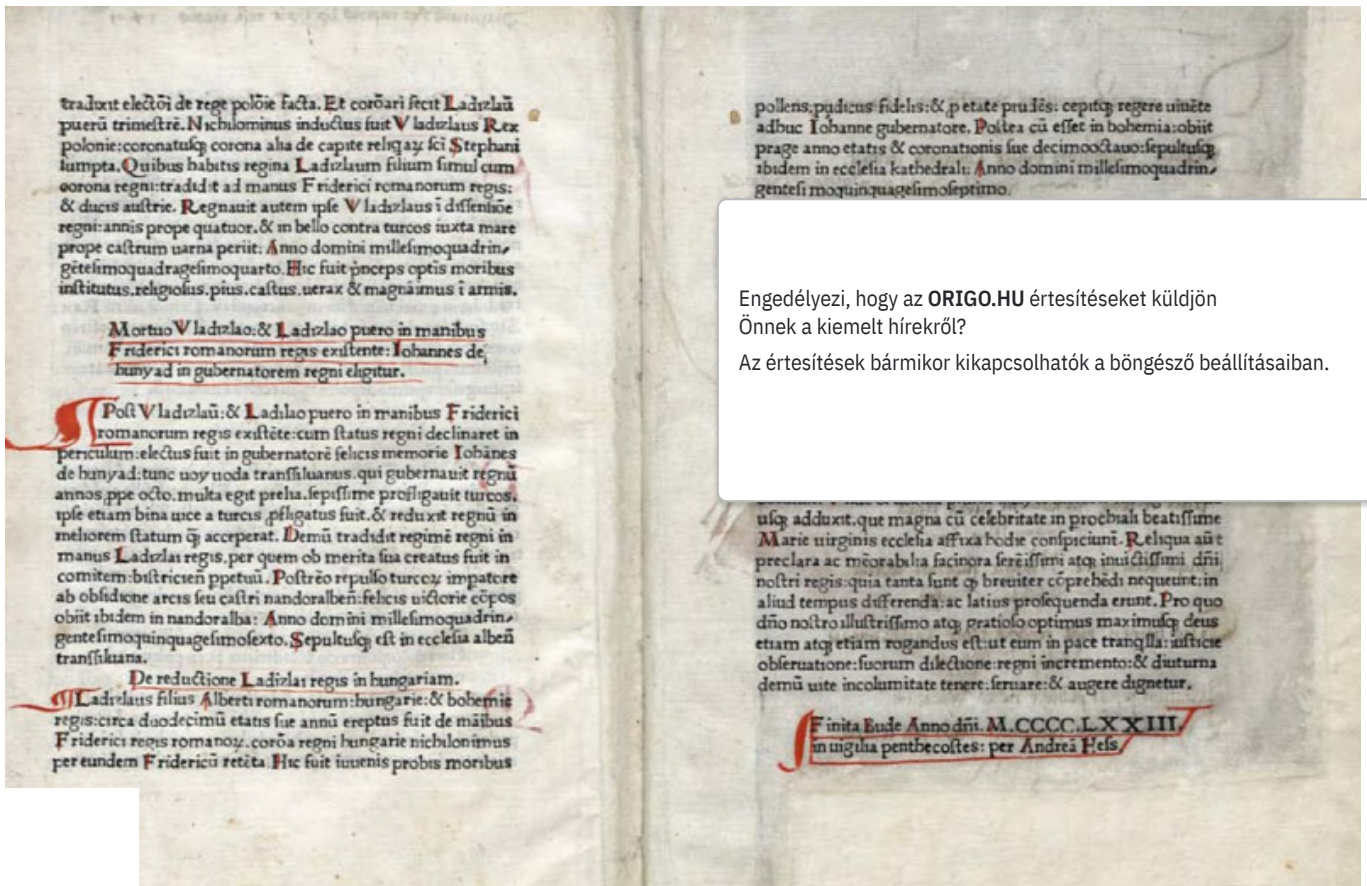 traduxit electōi de rege polōie facta. Et corōari fecit Ladizlaū
puerū trimestrē. Nichilominus inductus fuit Vladizlaus Rex
polonie: coronatusqꝫ corona alia de capite reliqaꝝ sci Stephani
sumpta. Quibus habitis regina Ladizlaum filium simul cum
corona regni: tradidit ad manus Friderici romanorum regis:
& ducis austrie. Regnauit autem ipse Vladizlaus ī dissensiōe
regni: annis prope quatuor. & in bello contra turcos iuxta mare
prope castrum uarna periit: Anno domini millesimoquadrin,
gētesimoquadragesimoquarto. Hic fuit pnceps optīs moribus
institutus. religiosus. pius. castus. uerax & magnāimus ī armis.
Mortuo Vladizlao: & Ladizlao puero in manibus
Friderici romanorum regis existente: Iohannes de
hunyad in gubernatorem regni eligitur.
Post Vladizlaū: & Ladilao puero in manibus Friderici
romanorum regis existēte: cum status regni declinaret in
periculum: electus fuit in gubernatorē felicis memorie Iohānes
de hunyad: tunc uoyuoda transsiluanus. qui gubernauit regnū
annos ꝓpe octo. multa egit prelia. sepissime profligauit turcos.
ipse etiam bina uice a turcis ꝓfligatus fuit. & reduxit regnū in
meliorem statum q̄ꝫ acceperat. Demū tradidit regimē regni in
manus Ladizlai regis. per quem ob merita sua creatus fuit in
comitem: bistricień ppetuū. Postrēo repulso turcoꝝ impatore
ab obsidione arcis seu castri nandoralbeń: felicis uictorie cōpos
obiit ibidem in nandoralba: Anno domini millesimoquadrin,
gentesimoquinquagesimosexto. Sepultusqꝫ est in ecclesia albeń
transsiluana.
De reductione Ladizlai regis in hungariam.
Ladizlaus filius Alberti romanorum: hungarie: & bohemie
regis: circa duodecimū etatis sue annū ereptus fuit de māibus
Friderici regis romanoꝝ. corōa regni hungarie nichilonimus
per eundem Fridericū retēta. Hic fuit iuuenis probis moribus
pollens: pudicus fidelis: & ꝓ etate prudēs: cepitqꝫ regere uiuēte
adhuc Iohanne gubernatore. Postea cū esset in bohemia: obiit
prage anno etatis & coronationis sue decimooctauo: sepultusqꝫ
ibidem in ecclesia kathedrali: Anno domini millesimoquadrin,
gentesi moquinquagesimoseptimo.
Engedélyezi, hogy az ORIGO.HU értesítéseket küldjön
Önnek a kiemelt hírekről?
Az értesítések bármikor kikapcsolhatók a böngésző beállításaiban.
usqꝫ adduxit. que magna cū celebritate in prochiali beatissime
Marie uirginis ecclesia affixa hodie conspiciunt. Reliqua aūt
preclara ac mēorabilia facinora serēissimi atqꝫ inuictissimi dńi
nostri regis: quia tanta sunt qꝫ breuiter cōprehēdi nequeunt: in
aliud tempus differenda: ac latius prosequenda erunt. Pro quo
dńo nostro illustrissimo atqꝫ gratioso optimus maximusqꝫ deus
etiam atqꝫ etiam rogandus est: ut eum in pace tranqlla: iusticie
obseruatione: suorum dilectione: regni incremento: & diuturna
demū uite incolumitate tenere: seruare: & augere dignetur.
Finita Bude Anno dńi. M.CCCC.LXXIII.
in uigilia penthecostes: per Andreā Hess.